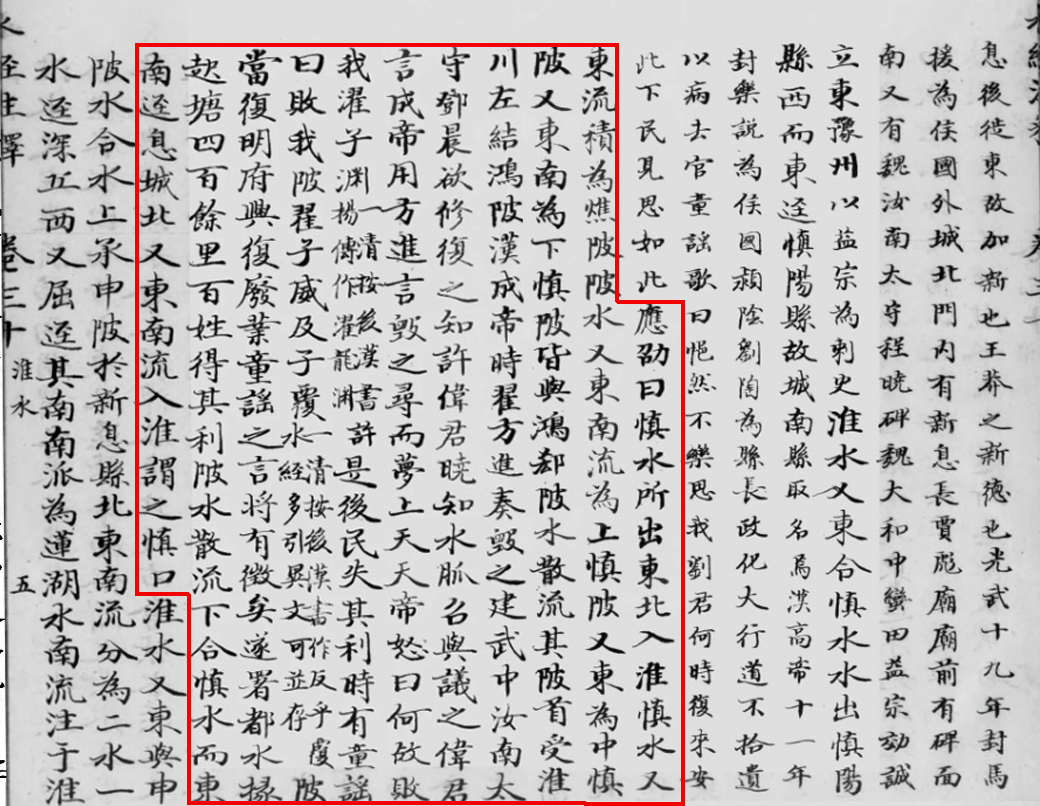 息後徙東故加新也王莽之新德也光武十九年封馬
援為侯國外城北門內有新息長賈彪廟廟前有碑面
南又有魏汝南太守程曉碑魏大和中蠻田益宗効誠
立東豫州以益宗為刺史淮水又東合慎水水出慎陽
縣西而東逕慎陽縣故城南縣取名焉漢高帝十一年
封樂說為侯國潁陰劉陶為縣長政化大行道不拾遺
以病去官童謠歌曰悒然不樂思我劉君何時復來安
此下民見思如此應劭曰慎水所出東北入淮慎水又
東流積為燋陂陂水又東南流為上慎陂又東為中慎
陂又東南為下慎陂皆與鴻郄陂水散流其陂首受淮
川左結鴻陂漢成帝時翟方進奏毀之建武中汝南太
守鄧晨欲修復之知許偉君曉知水脈召與議之偉君
言成帝用方進言毀之尋而夢上天天帝怒曰何故敗
我濯子淵一清按後漢書許楊傳作濯龍淵是後民失其利時有童謠
曰敗我陂翟子威及子覆一清按後漢書作反乎覆水經多引異文可並存陂
當復明府興復廢業童謠之言將有徵矣遂署都水掾
起塘四百餘里百姓得其利陂水散流下合慎水而東
南逕息城北又東南流入淮謂之慎口淮水又東與申
陂水合水上承申陂於新息縣北東南流分為二水一
水逕深丘西又屈逕其南南派為蓮湖水南流注于淮
水經注釋 卷三十 淮水 五